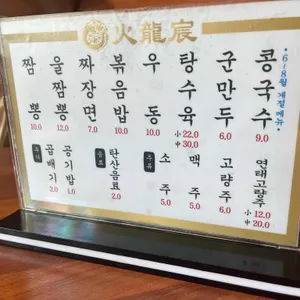 火龍宸
짬뽕 10.0
울짬뽕 12.0
짜장면 7.0
볶음밥 10.0
우동 10.0
탕수육 小 22.0 中 30.0
군만두 6.0
콩국수 9.0
*6~8월 계절메뉴*
곱배기 1.0
공기밥 1.0
음료
탄산음료 2.0
주류
소주 5.0
맥주 5.0
고량주 6.0
연태고량주 小 12.0 中 20.0